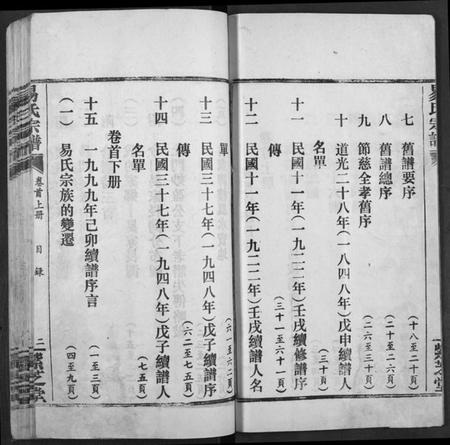 易氏宗譜
七 舊譜要序
(十八至二十頁)
八 舊譜總序
(二十至二六頁)
九 節慈全孝舊序
(二六至三十頁)
十 道光二十八年(一八四八年)戊申續譜人
名單
(三十頁)
十一 民國十一年(一九二二年)壬戌續修譜序
(三十一至六十一頁)
十二 民國十一年(一九二二年)壬戌續譜人名
單
(六一至六二頁)
十三 民國三十七年(一九四八年)戊子續譜序
傳
(六二至七五頁)
十四 民國三十七年(一九四八年)戊子續譜人
名單
(七五頁)
卷首下册
十五 一九九九年己卯續譜序言
(一至三頁)
(一) 易氏宗族的變遷
(四至九頁)
易氏宗譜
卷首上册 目録
二